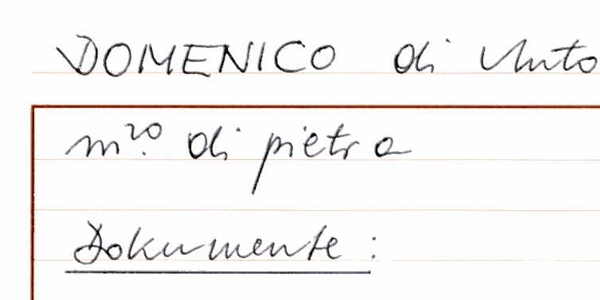 DOMENICO di Anto
m.ro di pietra
Dokumente: